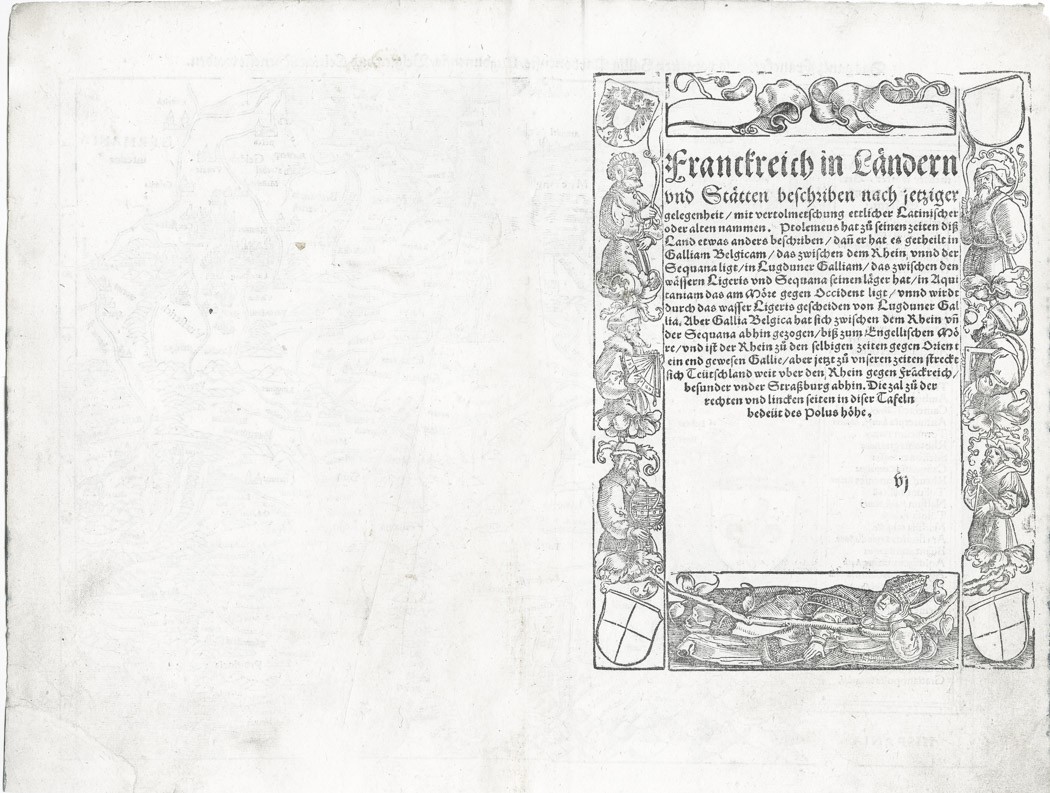 Franckreich in Ländern
vnd Stätten beschriben nach jetziger
gelegenheit / mit vertolmetschung ettlicher Latinischer
oder alten nammen. Ptolemeus hat zů seinen zeiten diß
Land etwas anders beschriben / dañ er hat es getheilt in
Galliam Belgicam / das zwischen dem Rhein vnnd der
Sequana ligt / in Lugduner Galliam / das zwischen den
wässern Ligeris vnd Sequana seinen läger hat / in Aqui
taniam das am Möre gegen Occident ligt / vnnd wirdt
durch das wasser Ligeris gescheiden von Lugduner Gal
lia. Aber Gallia Belgica hat sich zwischen dem Rhein vñ
der Sequana abhin gezogen / biß zum Engellischen Mö
re / vnd ist der Rhein zů den selbigen zeiten gegen Orient
ein end gewesen Gallie / aber jetzt zů vnseren zeiten streckt
sich Teütschland weit vber den Rhein gegen Frãckreich /
besunder vnder Straßburg abhin. Die zal zů der
rechten vnd lincken seiten in diser Tafeln
bedeüt des Polus höhe.
vj